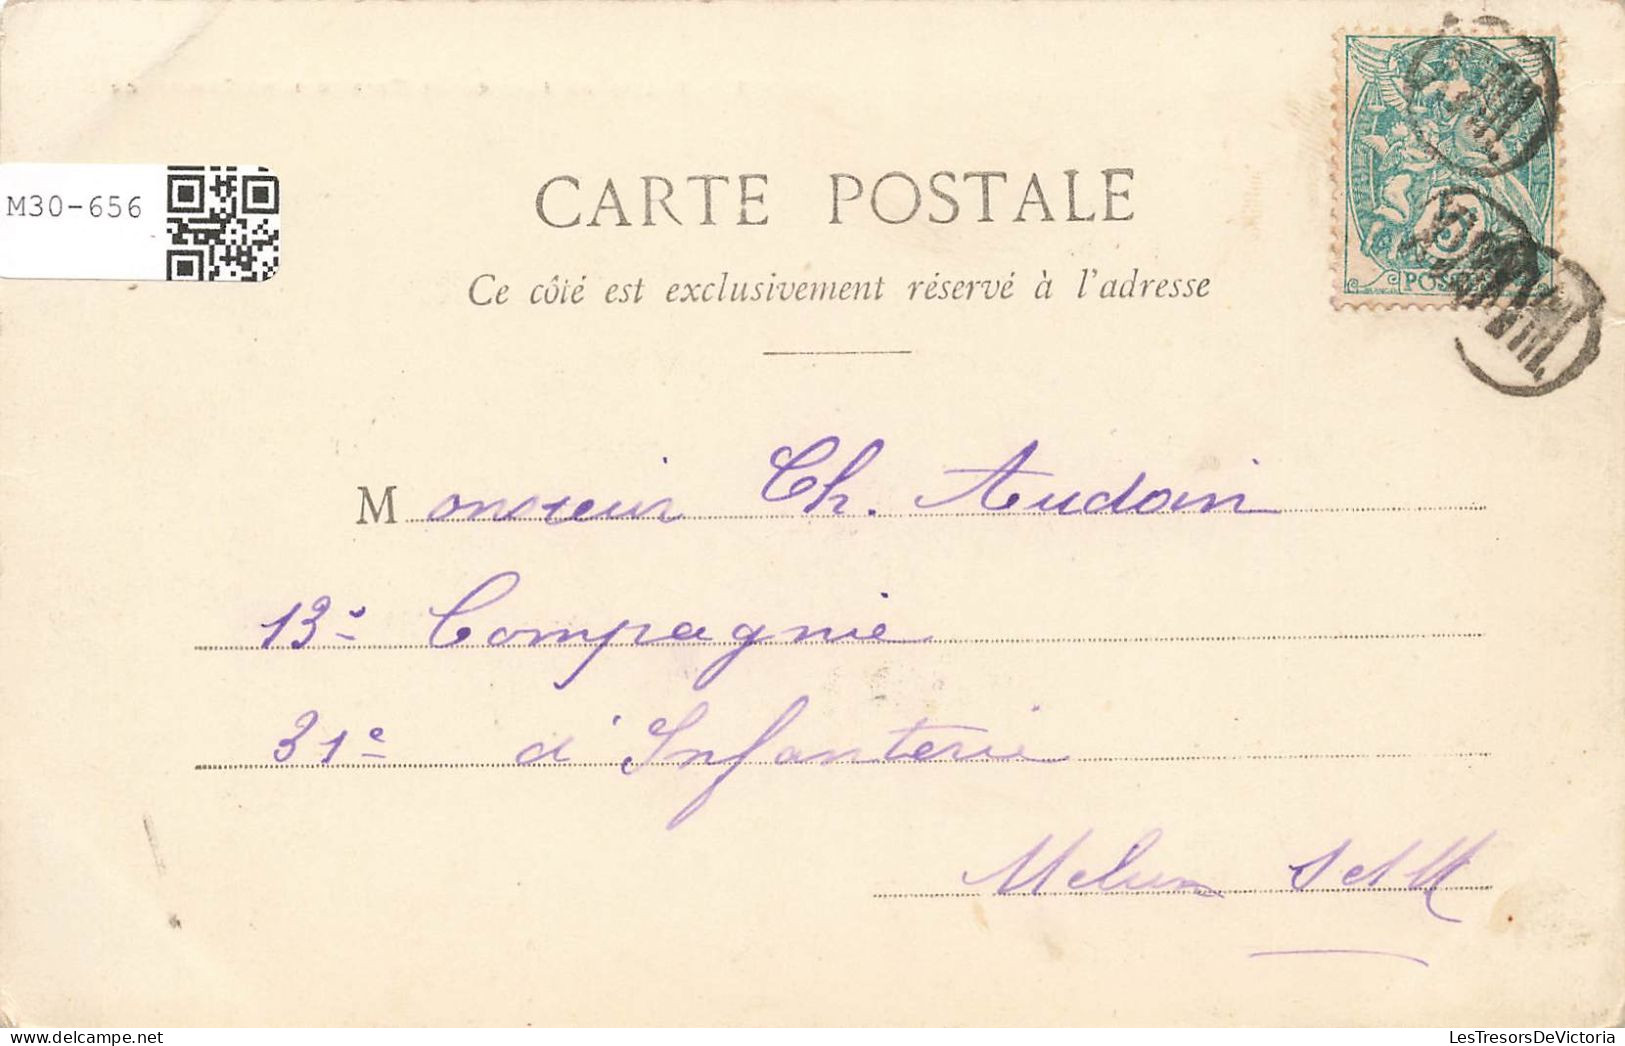 M30-656
CARTE POSTALE
Ce côté est exclusivement réservé à l'adresse
5
POSTES
Monsieur Ch. Audoin
13e Compagnie
31e d'Infanterie
Melun S et M
LesTresorsDeVictoria